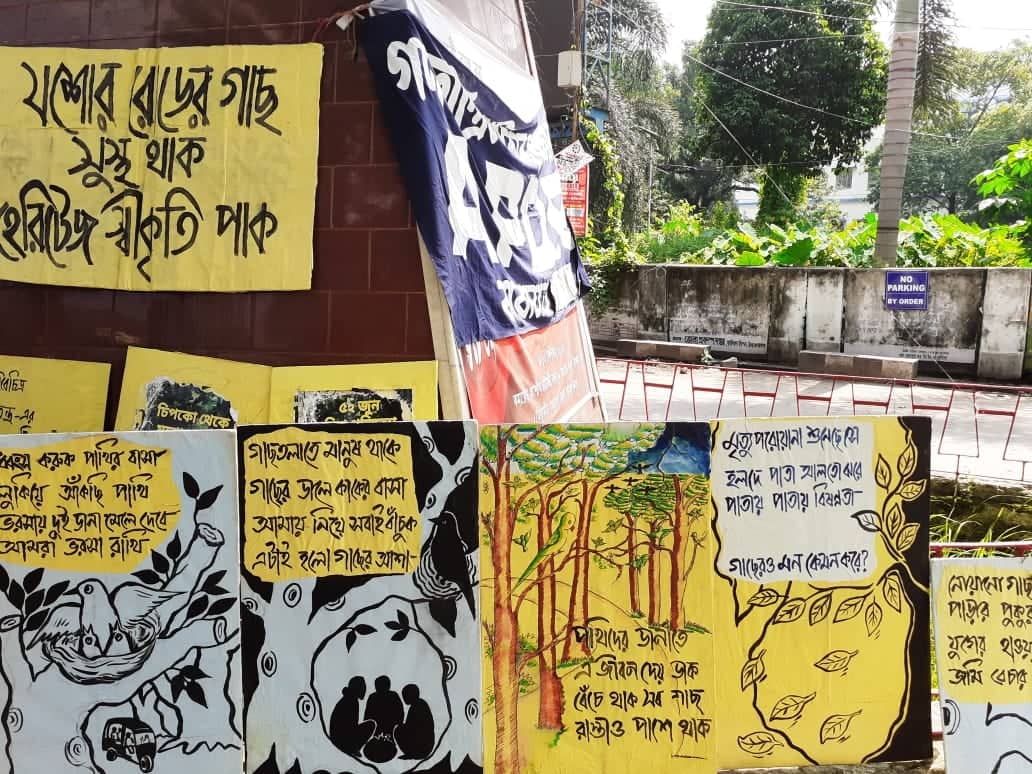 যশোর রোডের গাছ
সুস্থ থাক
হেরিটেজ স্বীকৃতি পাক
APDR
NO
PARKING
BY ORDER
চিপকো থেকে
৫ই জুন
করুক পাখির বাসা
লুকিয়ে আঁকছি পাখি
ভরসায় দুই ডানা মেলে দেবে
আমরা ভরসা রাখি
গাছতলাতে মানুষ থাকে
গাছের ডালে কাকের বাসা
আমায় নিয়ে সবাই বাঁচুক
এটাই হলো গাছের আশা
পাখিদের ডানাতে
এ জীবন দেয় ডাক
বেঁচে থাক সব গাছ
রাস্তাও পাশে থাক
মৃত্যু পরোয়ানা শুনেছে সে
হলদে পাতা আলতো ঝরে
পাতায় পাতায় বিষন্নতা
গাছেরও মন কেমন করে?
পাড়ার পুকু
যুগের হাওয়
জমি বেচার